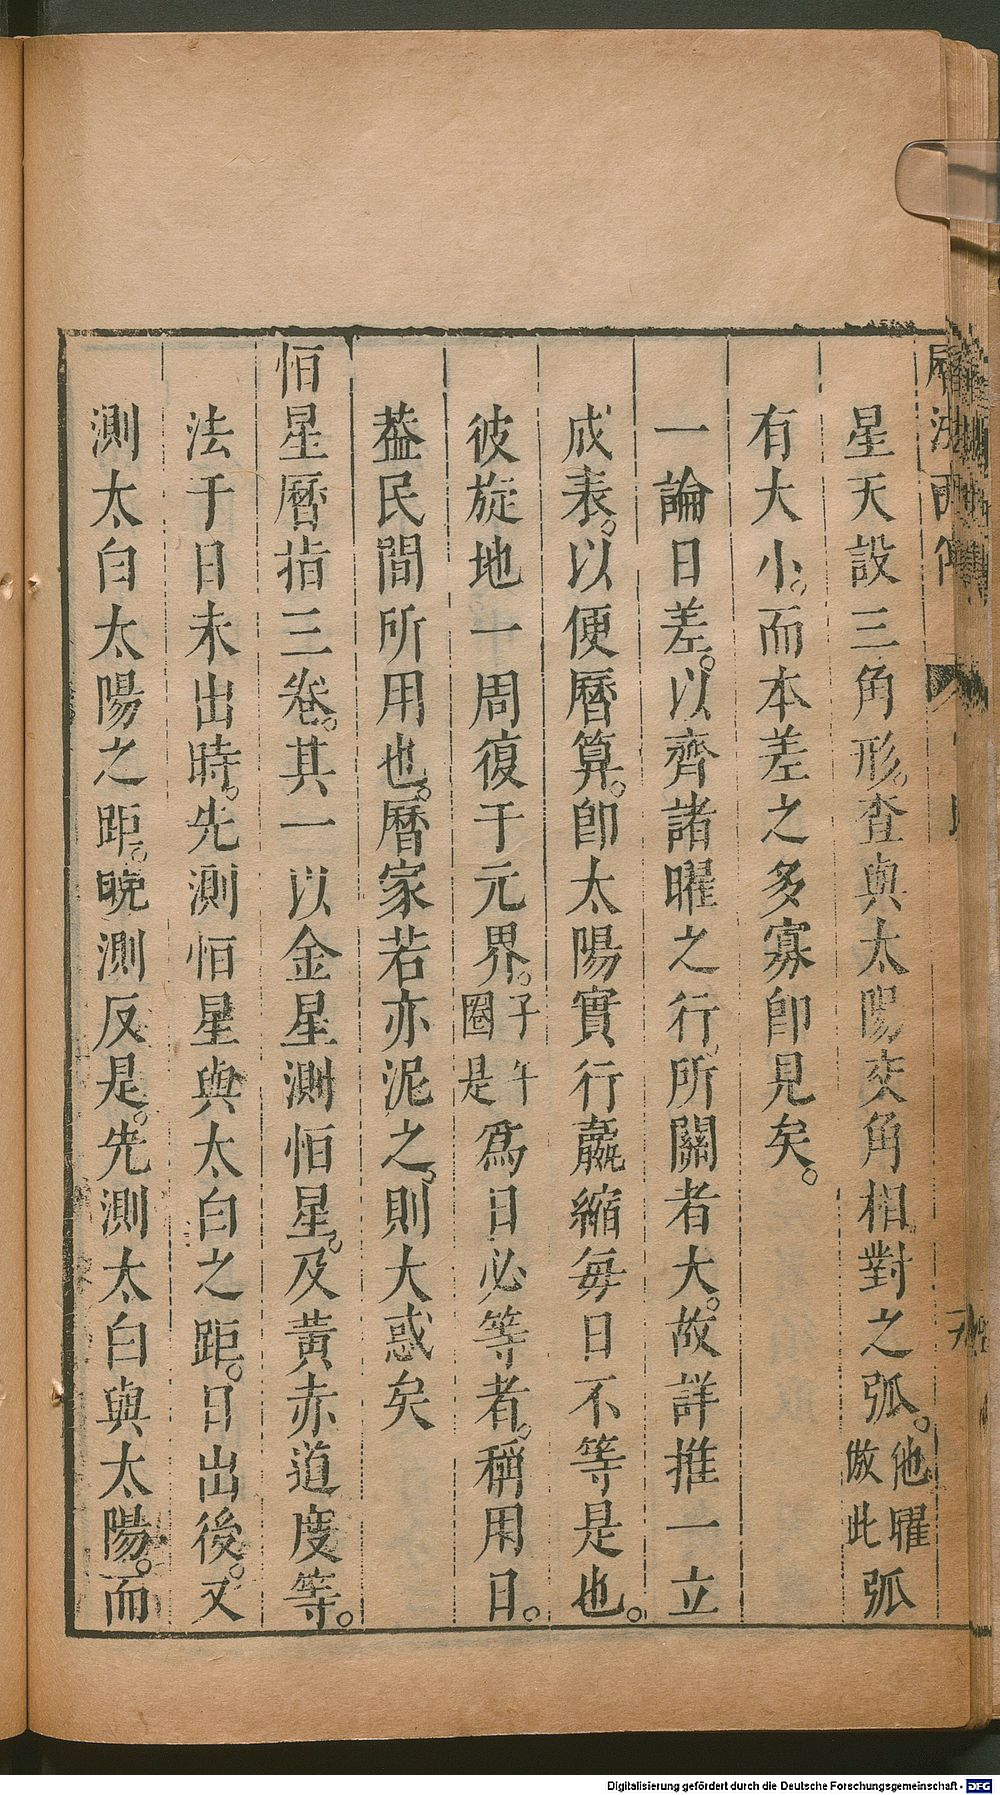 曆法西傳
星天設三角形。查與太陽夾角相對之弧。他曜倣此弧
有大小。而本差之多寡卽見矣。
一論日差。以齊諸曜之行。所關者大。故詳推一立
成表。以便曆算。卽太陽實行嬴縮每日不等是也。
彼旋地一周復于元界。子午圈是爲日必等者。稱用日。
葢民間所用也。曆家若亦泥之。則大惑矣
恒星曆指三卷。其一以金星測恒星。及黃赤道度等。
法于日未出時。先測恒星與太白之距。日出後。又
測太白太陽之距。晚測反是。先測太白與太陽。而
Digitalisierung gefördert durch die Deutsche Forschungsgemeinschaft - DFG